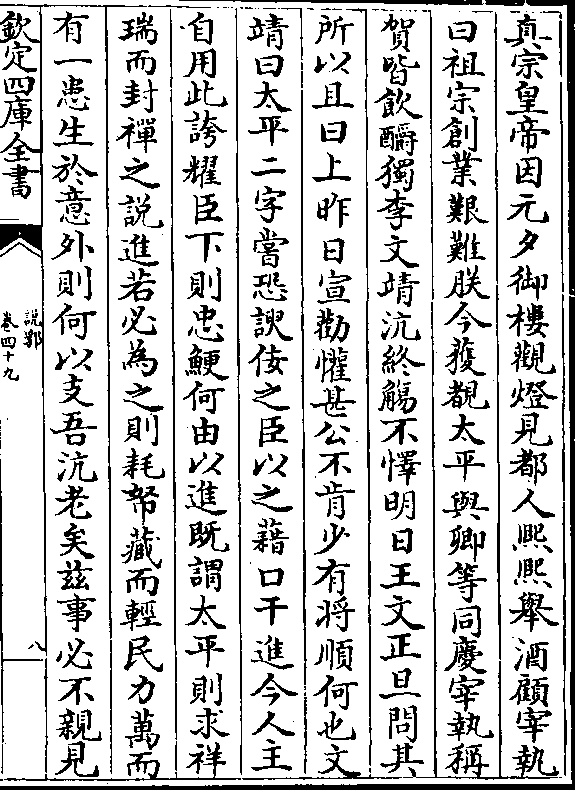 真宗皇帝因元夕御樓觀燈見都人熈熈舉酒顧宰執
曰祖宗創業艱難朕今獲覩太平與卿等同慶宰執稱
賀皆飲釂獨李文靖沆終觴不懌明日王文正旦問其
所以且曰上昨日宣勸懽甚公不肯少有將順何也文
靖曰太平二字嘗恐諛佞之臣以之藉口干進今人主
自用此誇耀臣下則忠鯁何由以進既謂太平則求祥
瑞而封禪之說進若必為之則耗帑藏而輕民力萬而
有一患生於意外則何以支吾沆老矣兹事必不親見
欽定四庫全書
說郛
卷四十九
八